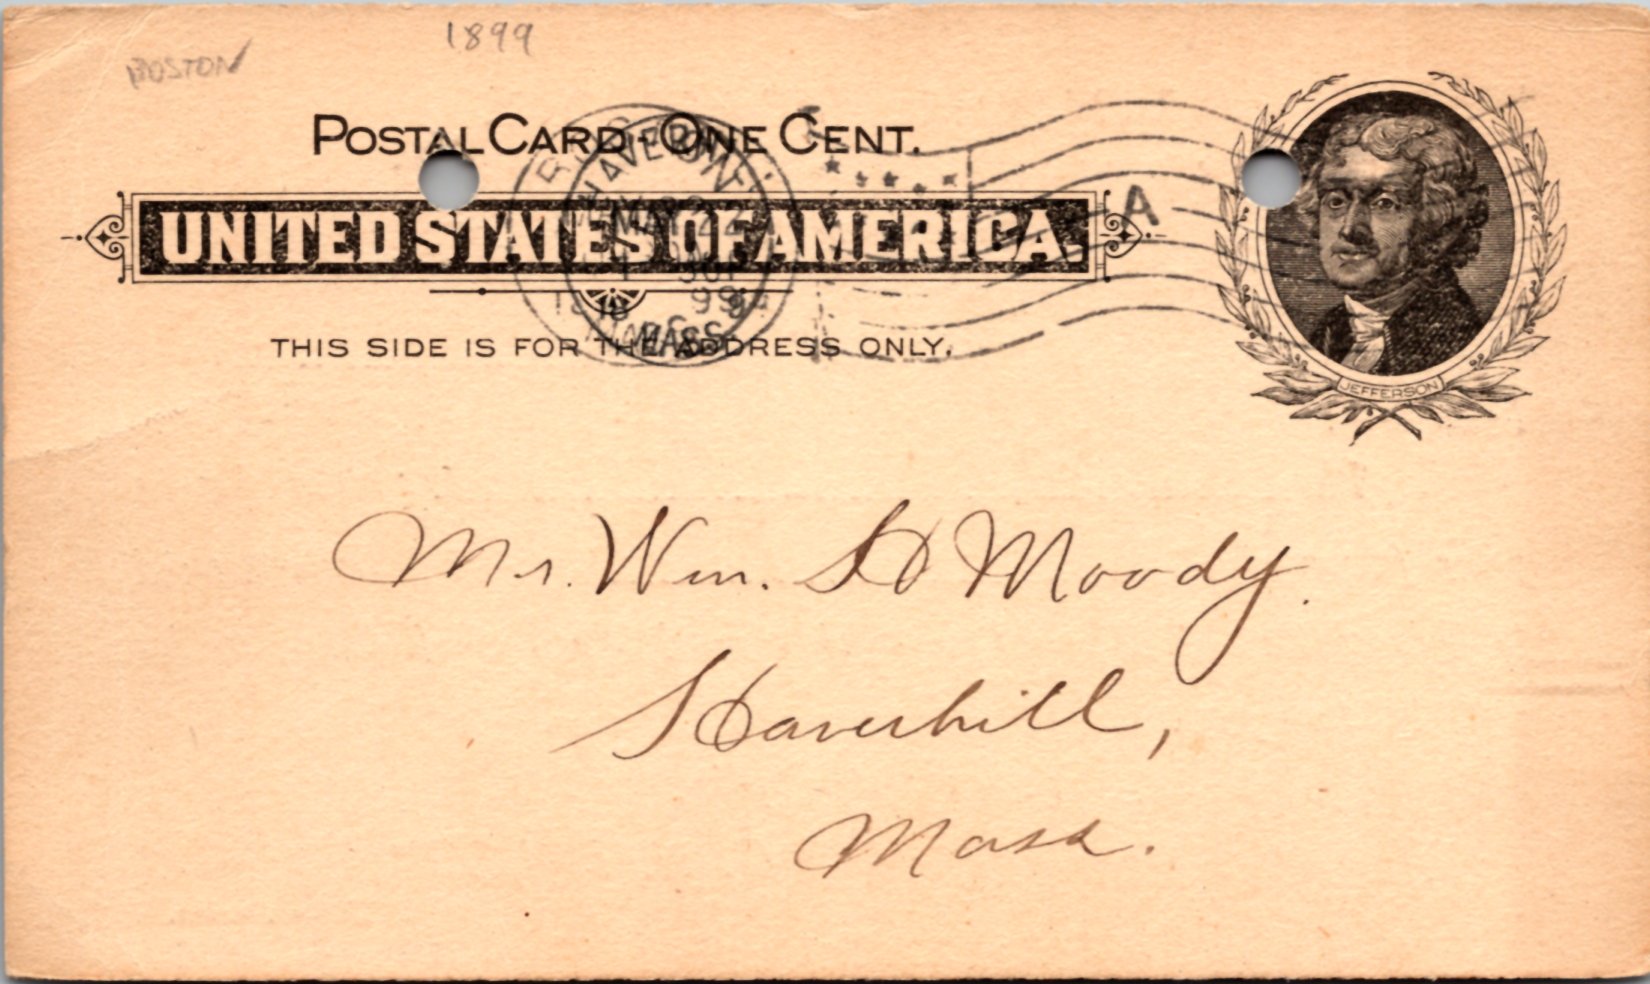 1899
BOSTON
POSTAL CARD - ONE CENT.
UNITED STATES OF AMERICA.
THIS SIDE IS FOR THE ADDRESS ONLY.
A
JEFFERSON
MASS
Mr. Wm. H Moody.
Haverhill,
Mass.